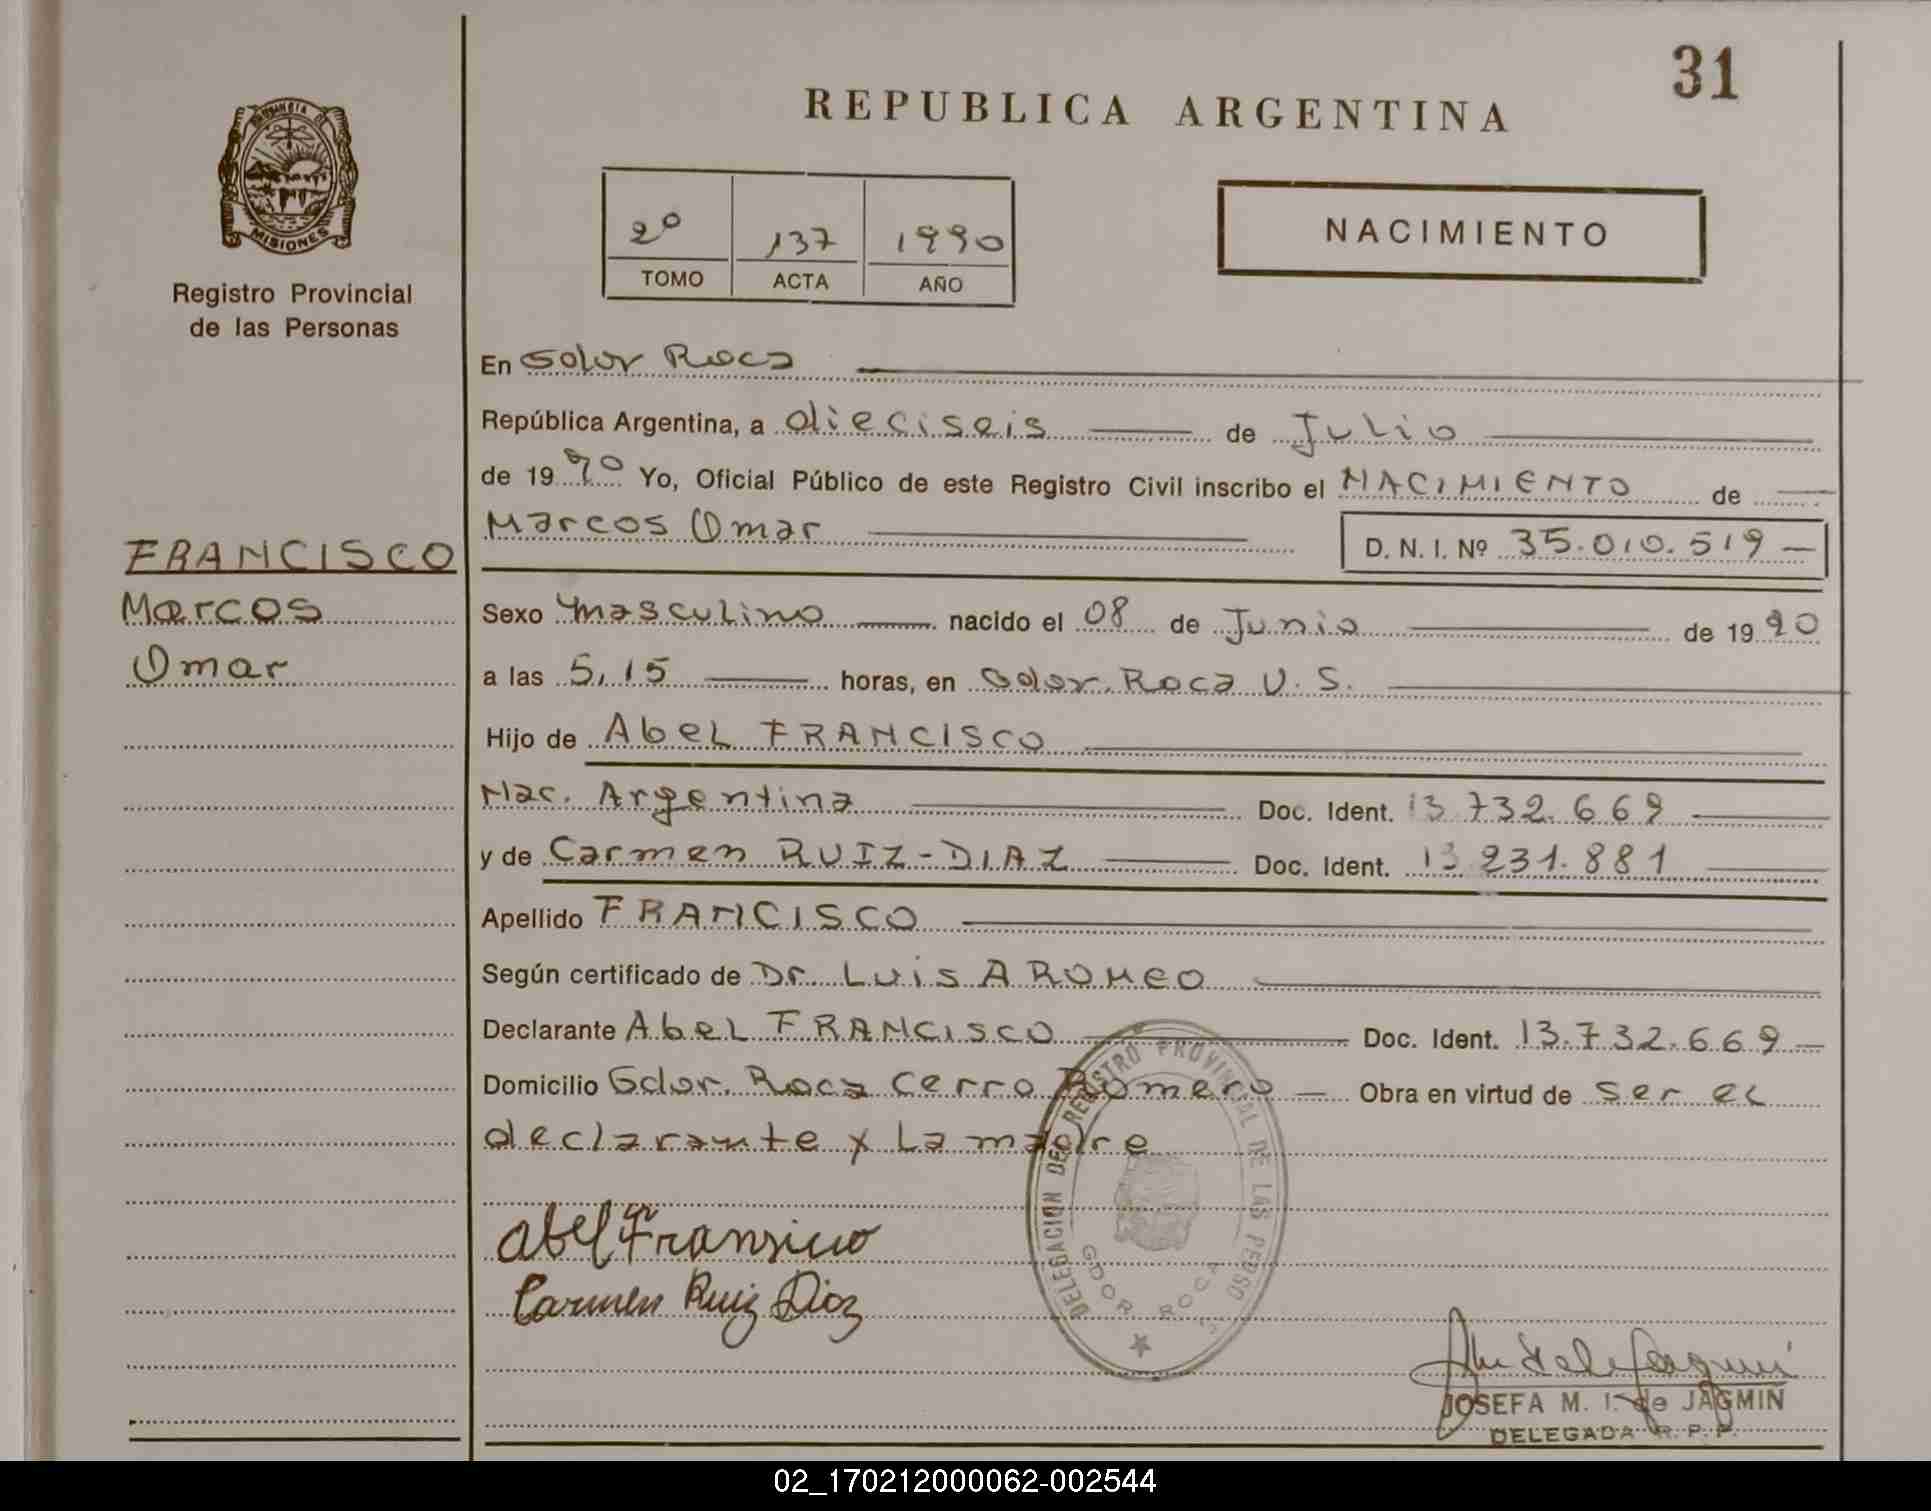 31
REPUBLICA ARGENTINA
PROVINCIA DE
MISIONES
Registro Provincial
de las Personas
2º 137 1990
TOMO ACTA AÑO
NACIMIENTO
En Gdor Roca
República Argentina, a dieciseis de Julio
de 1990 Yo, Oficial Público de este Registro Civil inscribo el NACIMIENTO de
Marcos Omar D. N. I. Nº 35.010.519
FRANCISCO
Marcos
Omar
Sexo masculino nacido el 08 de Junio de 1990
a las 5,15 horas, en Gdor. Roca U. S.
Hijo de Abel FRANCISCO
Nac. Argentina Doc. Ident. 13.732.669
y de Carmen RUIZ-DIAZ Doc. Ident. 13.231.881
Apellido FRANCISCO
Según certificado de Dr. Luis A ROMEO
Declarante Abel FRANCISCO Doc. Ident. 13.732.669
Domicilio Gdor. Roca Cerro Romero Obra en virtud de ser el
declarante y La madre
DELEGACION DEL REGISTRO PROVINCIAL DE LAS PERSO
GDOR. ROCA
Abel Fransicco
Carmen Ruiz Diaz
JOSEFA M. I. de JAGMIN
DELEGADA R. P. P.
02_170212000062-002544